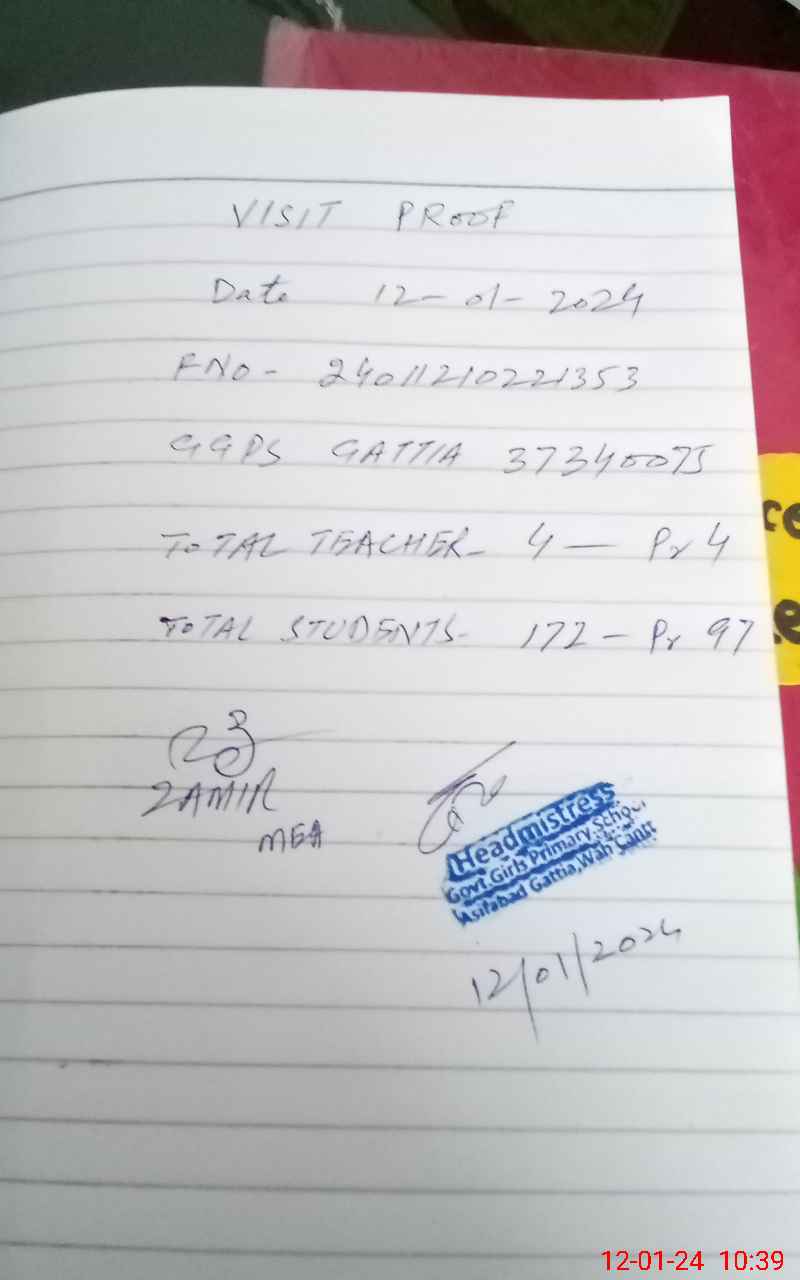 VISIT PROOF
Date 12-01-2024
FNO- 24011210221353
GGPS GATTIA 37340075
TOTAL TEACHER- 4 — Pr 4
TOTAL STUDENTS- 172 - Pr 97
ZAMIR
MEA
Headmistress
Govt.Girls Primary School
Asifabad Gattia,Wah Cantt
12/01/2024
12-01-24 10:39